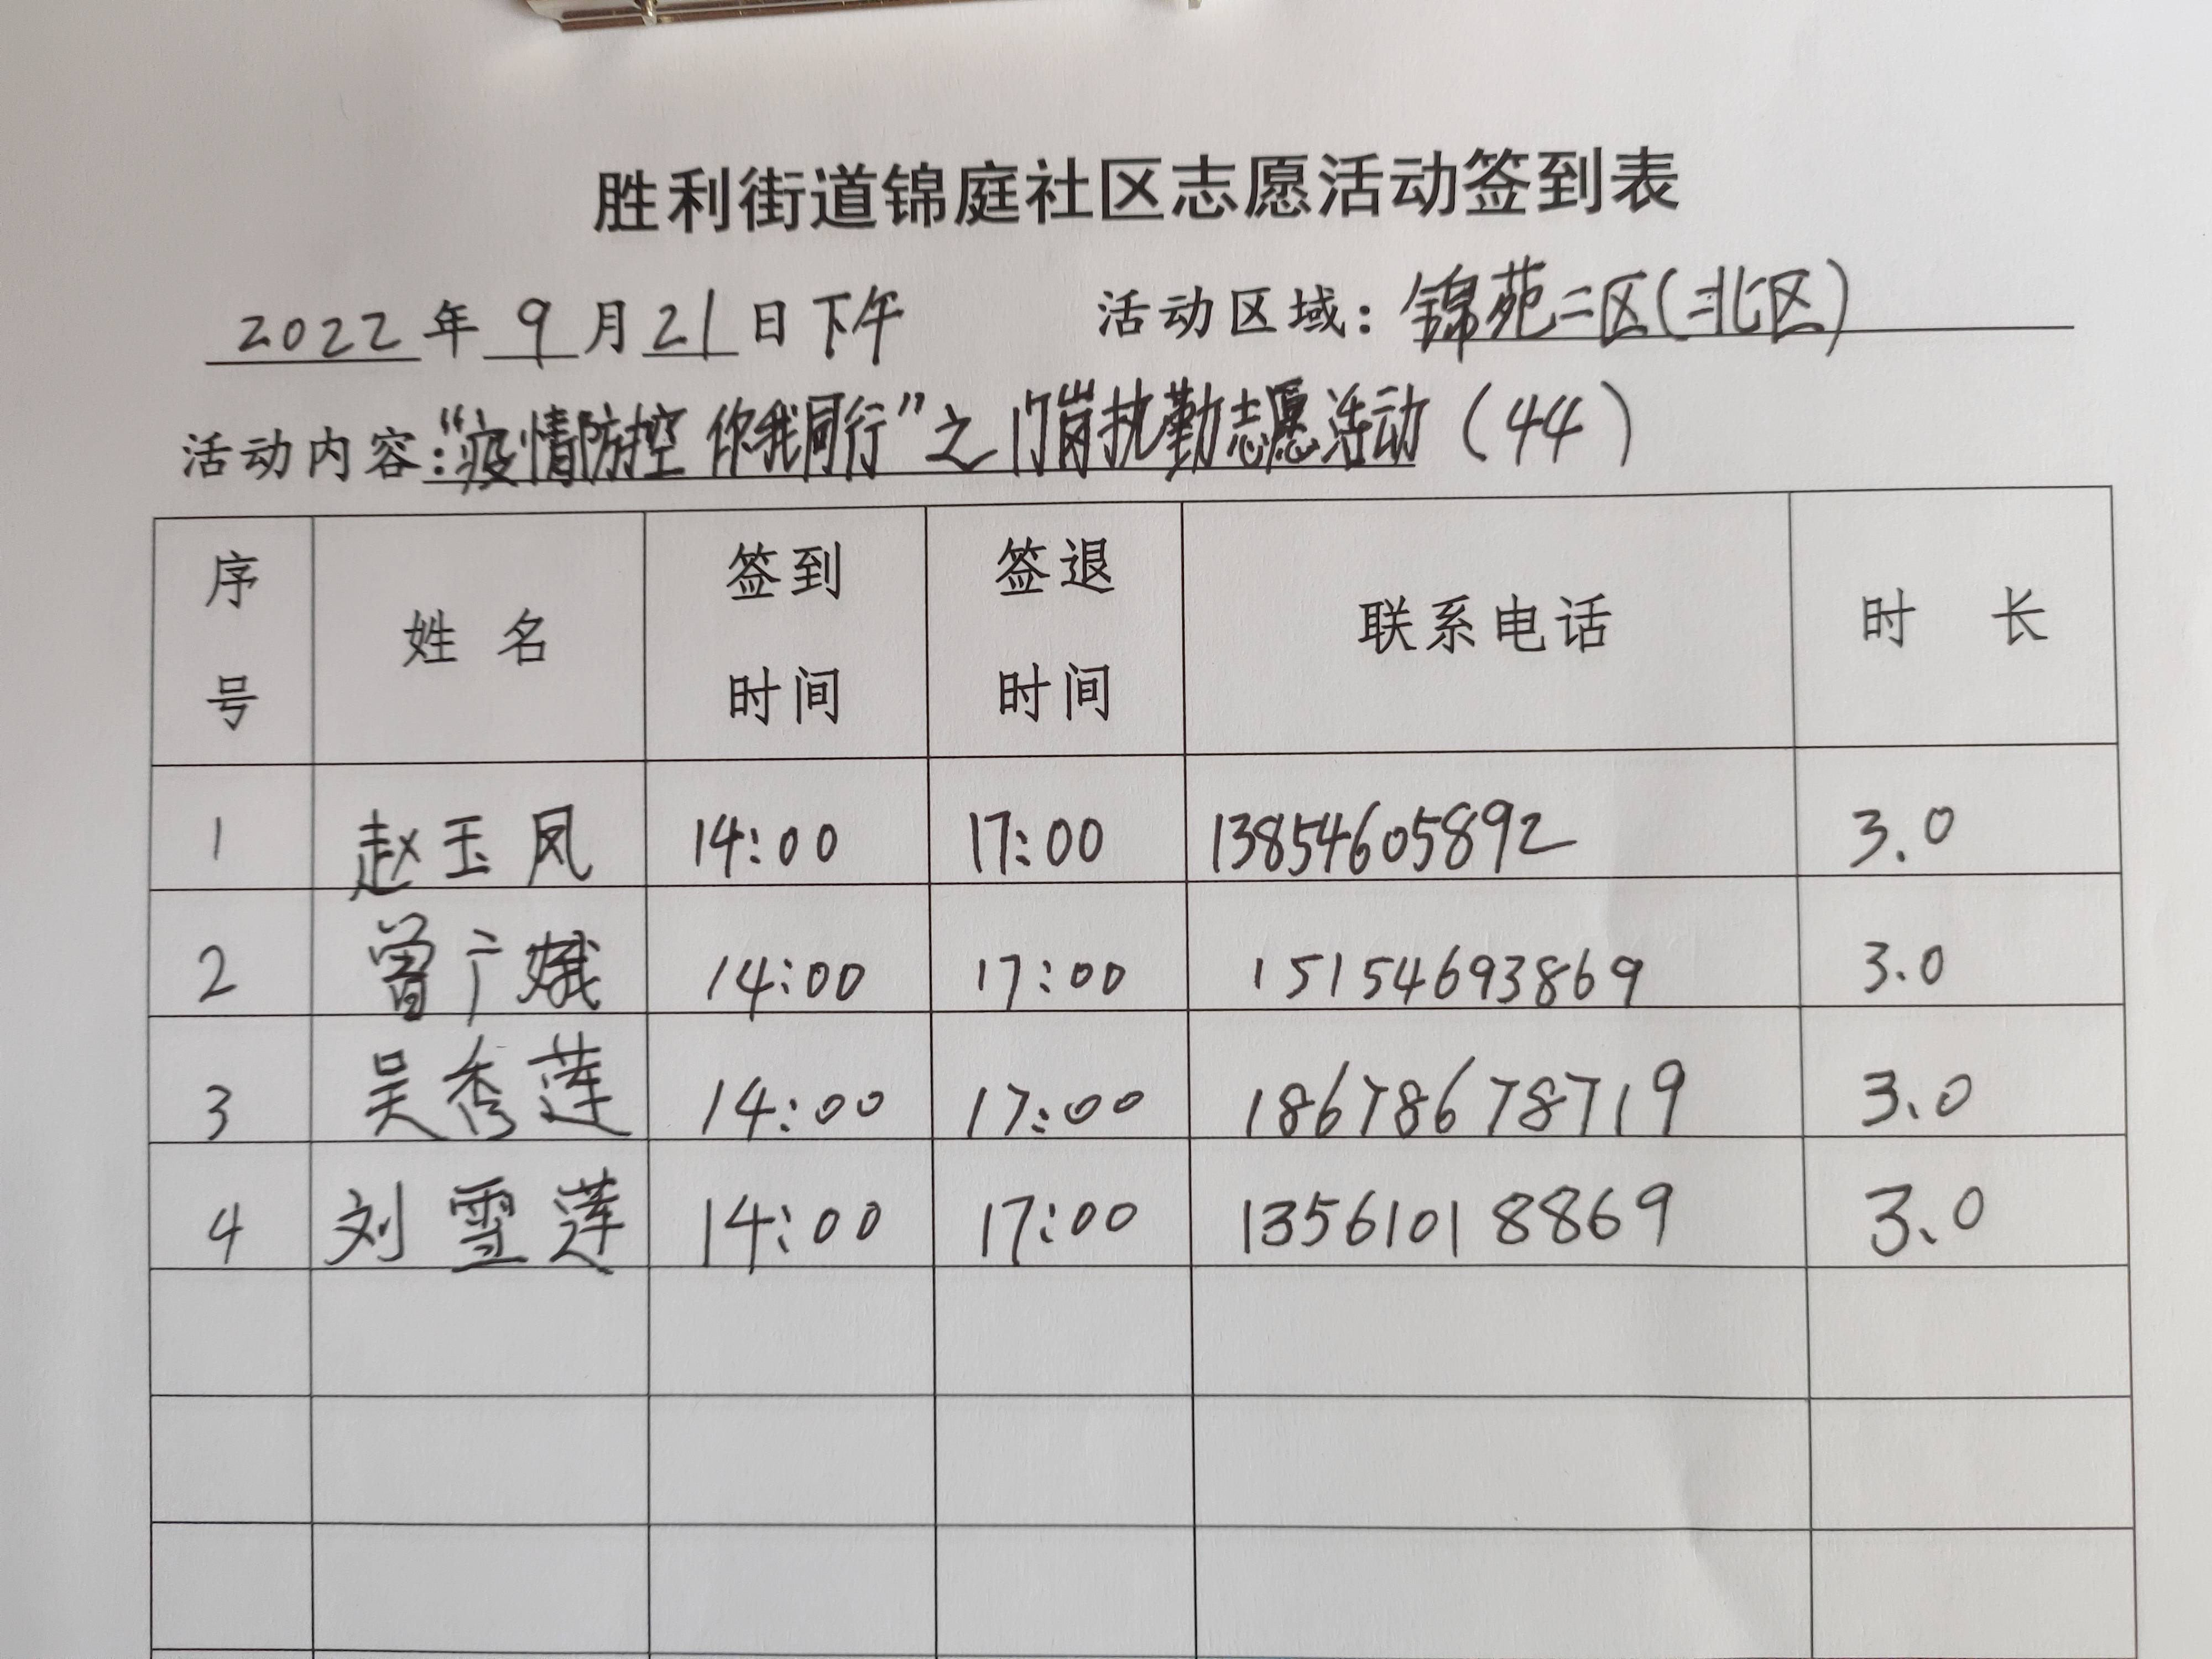 胜利街道锦庭社区志愿活动签到表
2022年9月21日下午 活动区域：锦苑二区(北区)
活动内容：“疫情防控 你我同行”之门岗执勤志愿活动（44）
序号 姓名 签到时间 签退时间 联系电话 时长
1 赵玉凤 14:00 17:00 13854605892 3.0
2 曾广娥 14:00 17:00 15154693869 3.0
3 吴秀莲 14:00 17:00 18678678719 3.0
4 刘雪莲 14:00 17:00 13561018869 3.0